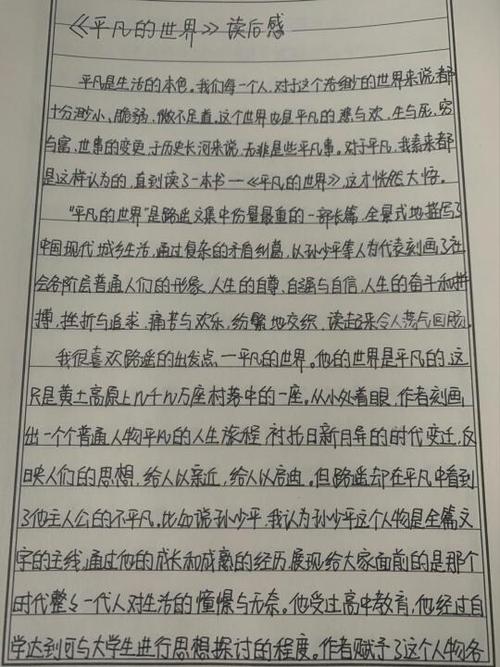 《平凡的世界》读后感
平凡是生活的本色。我们每一个人,对于这个浩渺的世界来说,都
十分渺小、脆弱、微不足道。这个世界也是平凡的,悲与欢、生与死、穷
与富、世事的变更,于历史长河来说,无非是些平凡事。对于平凡,我素来都
是这样认为的,直到读了一本书—《平凡的世界》,这才恍然大悟。
"平凡的世界"是路遥文集中份量最重的一部长篇,全景式地描写了
中国现代城乡生活,通过复杂的矛盾纠葛,以孙少平等人为代表刻画了社
会各阶层普通人们的形象,人生的自尊、自强与自信,人生的奋斗和拼
搏,挫折与追求,痛苦与欢乐,纷繁地交织,读起来令人荡气回肠。
我很喜欢路遥的出发点—平凡的世界。他的世界是平凡的,这
只是黄土高原上几千几万座村落中的一座。从小处着眼,作者刻画
出一个个普通人物平凡的人生旅程,衬托日新月异的时代变迁,反
映人们的思想,给人以亲近,给人以启迪。但路遥却在平凡中看到
了他主人公的不平凡。比如说孙少平,我认为孙少平这个人物是全篇文
字的主线,通过他的成长和成熟的经历,展现给大家面前的是那个
时代整整一代人对生活的憧憬与无奈。他受过高中教育,他经过自
学达到可与大学生进行思想探讨的程度。作者赋予了这个人物各